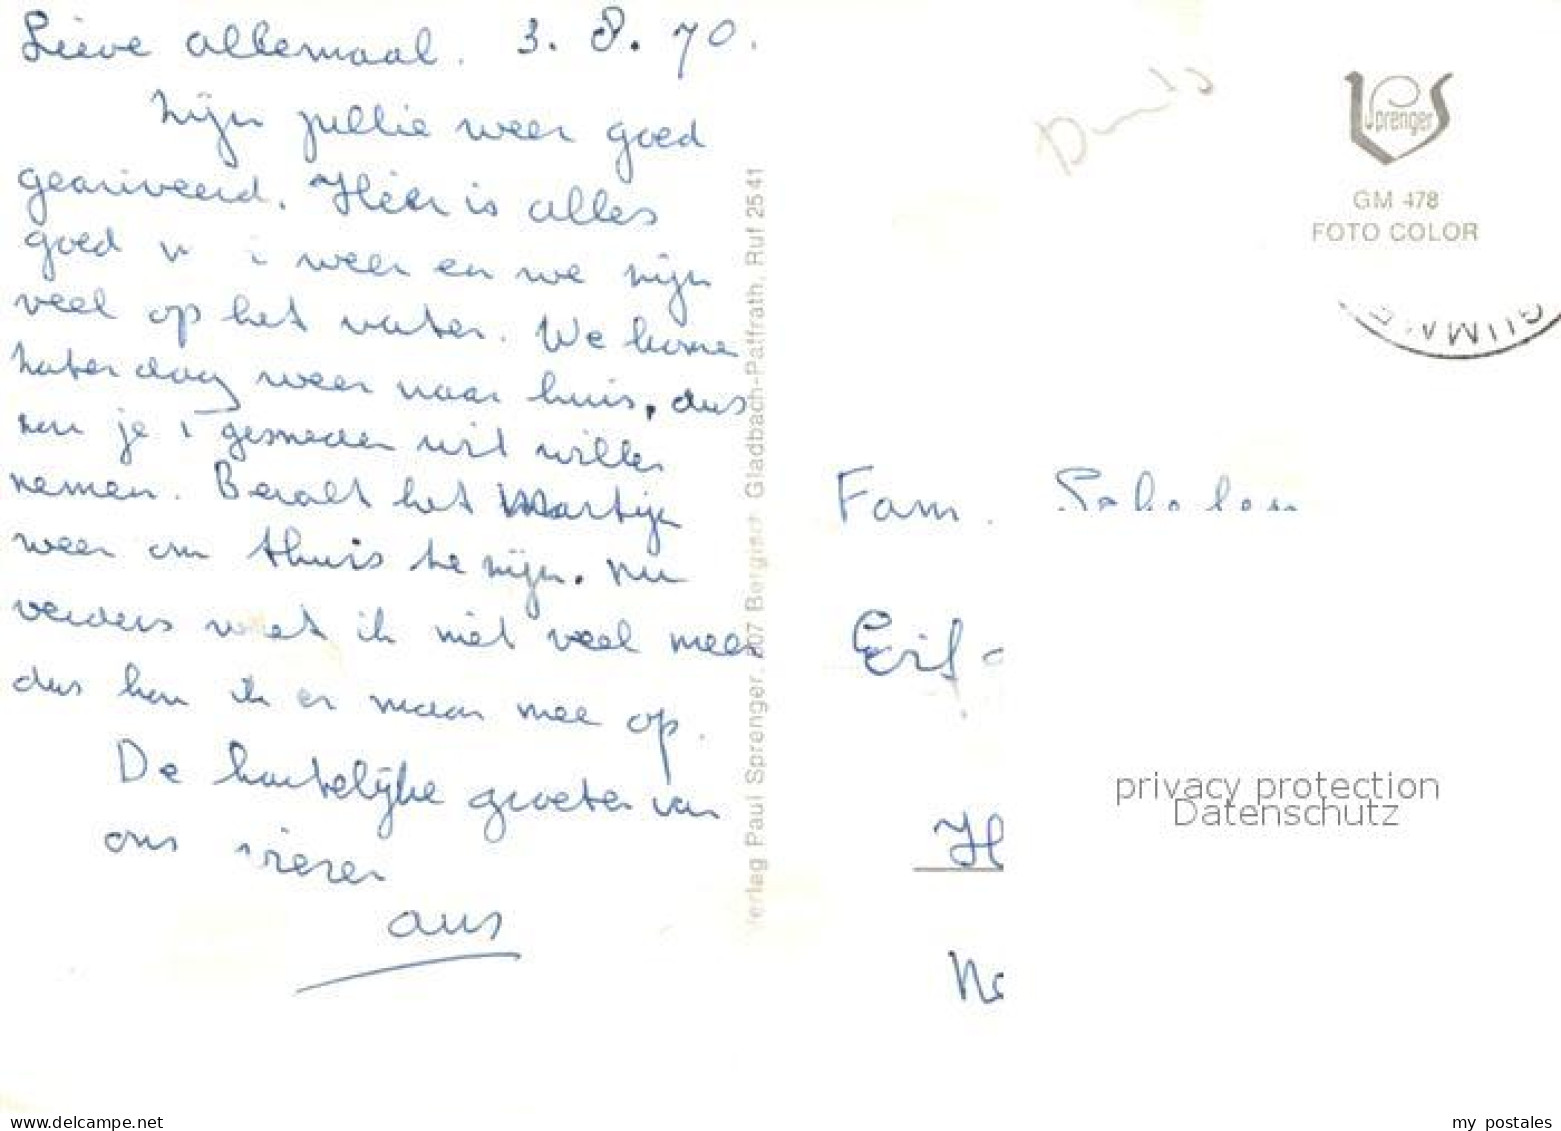 Lieve allemaal. 3. 8. 70.
Zijn jullie weer goed
gearriveerd. Hier is alles
goed weer en we zijn
veel op het water. We kome
zaterdag weer naar huis, dus
je gesneden wit willen
nemen. Bevalt het Martijn
weer om thuis te zijn. Nu
verders weet ik niet veel meer
dus hou ik er maar mee op.
De hartelijke groeten van
ons vieren
ans
Verlag Paul Sprenger, 507 Bergisch Gladbach-Paffrath, Ruf 2541
Sprenger
GM 478
FOTO COLOR
Fam.
privacy protection
Datenschutz
www.delcampe.net
my_postales